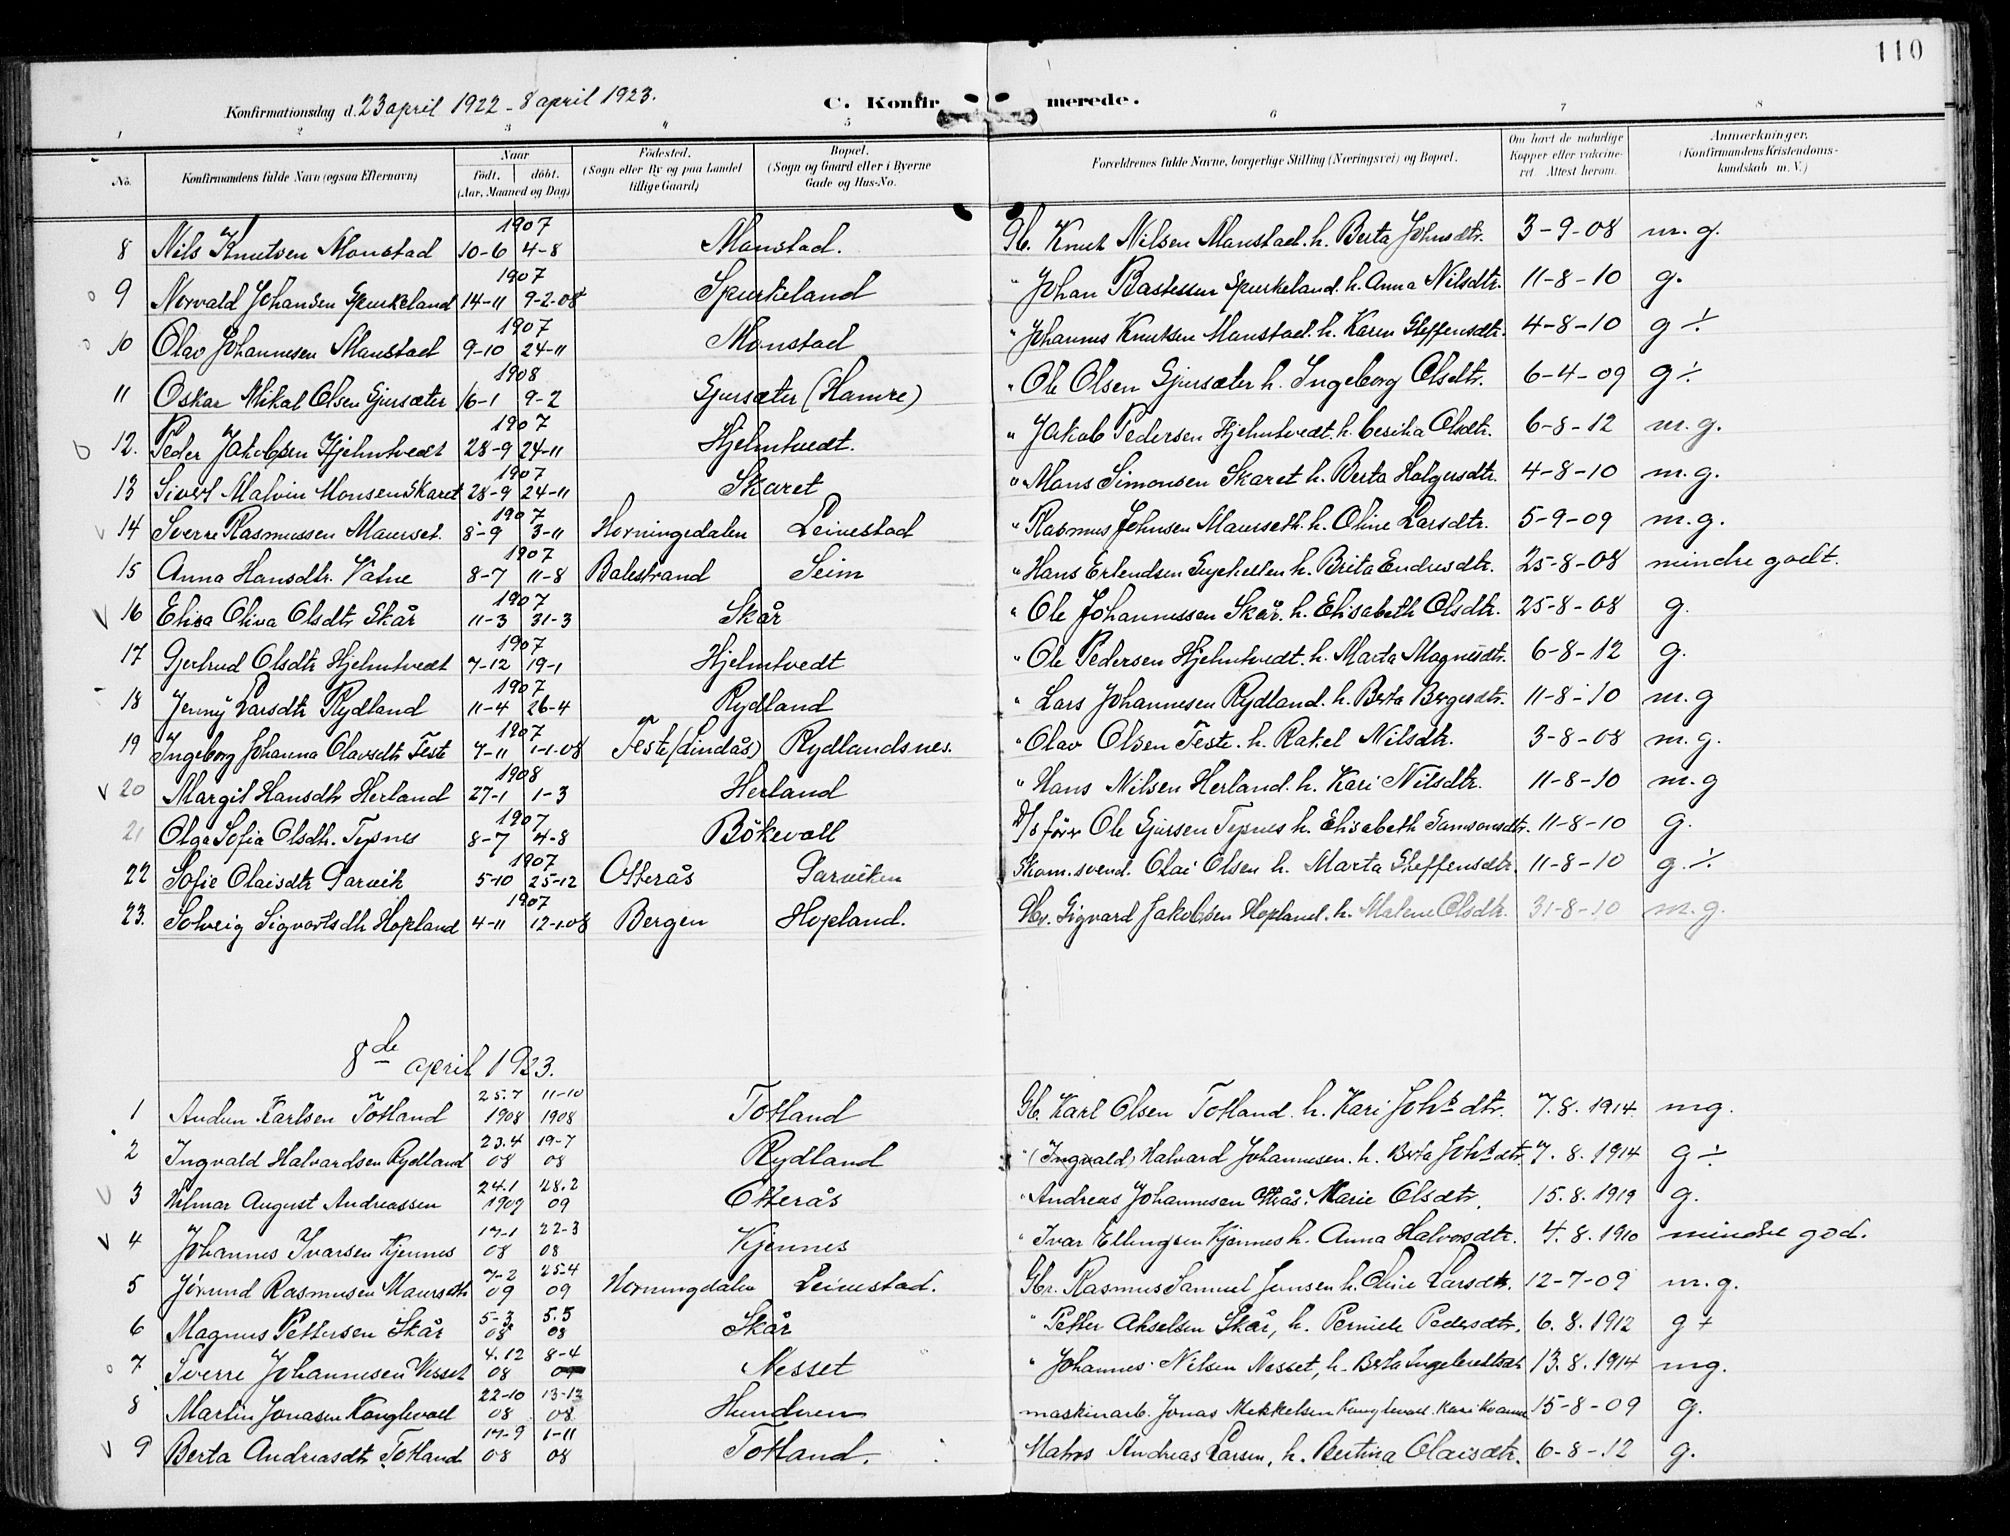 110
Konfirmationsdag d. 23 april 1922 - 8 april 1923. C. Konfirmerede.
1 2 3 " 5 6 7 8
No. Konfirmandens fulde Navn (ogsaa Efternavn) Naar født. døbt. (Aar, Maaned og Dag) Fødested. (Sogn eller By og paa Landet tillige Gaard) Bopæl. (Sogn og Gaard eller i Byerne Gade og Hus-No. Forældrenes fulde Navne, borgerlige Stilling (Næringsvei) og Bopæl. Om havt de naturlige Kopper eller vaccineret. Attest herom. Anmærkninger. (Konfirmandens Kristendomskundskab m. V.)
1907
8 Nils Knutsen Monstad 10-6 4-8 Monstad. Gb. Knut Nilsen Monstad. h. Berta Johnsdtr. 3-9-08 m.g.
1907
9 Norvald Johansen Spurkeland 14-11 9-2-08 Spurkeland " Johan Rastessen Spurkeland. h. Anna Nilsdtr. 11-8-10 g.
1907
10 Olav Johannesen Monstad 9-10 24-11 Monstad " Johannes Knutsen Monstad. h. Karen Steffensdtr. 4-8-10 g ÷
1908
11 Oskar Mikal Olsen Gjursæter 16-1 9-2 Gjursæter (Hamre) " Ole Olsen Gjursæter h. Ingeborg Olsdtr. 6-4-09 g ÷
1907
12. Peder Jakobsen Hjelmtvedt 28-9 24-11 Hjelmtvedt. " Jakob Pedersen Hjelmtvedt. h. Cesilia Olsdtr. 6-8-12 m.g.
1907
13 Sivert Malvin Monsen Skaret 28-9 24-11 Skaret " Mons Simonsen Skaret h. Berta Holgersdtr. 4-8-10 m.g.
1907
14 Sverre Rasmussen Maurset. 8-9 3-11 Horningsdalen Leinestad " Rasmus Johnsen Maurseth. h. Oline Larsdtr. 5-9-09 m.g.
1907
15 Anna Hansdtr. Vatne 8-7 11-8 Balestrand Seim " Hans Erlendsen h. Brita Endresdtr. 25-8-08 mindre godt.
1907
16 Elisa Oliva Olsdtr Skår 11-3 31-3 Skår " Ole Johannessen Skår. h. Elisabeth Olsdtr. 25-8-08 g.
1907
17 Gjertrud Olsdtr Hjelmtvedt 7-12 19-1 Hjelmtvedt " Ole Pedersen Hjelmtvedt. h. Marta Magnesdtr. 6-8-12 g.
1907
18 Jenny Larsdtr Rydland 11-4 26-4 Rydland " Lars Johannesen Rydland. h. Berta Bergesdtr. 11-8-10 m.g
1907
19 Ingeborg Johanna Olavsdtr Feste 7-11 1-1-08 Feste (Lindås) Rydlandsnes. " Olav Olsen Feste. h. Rakel Nilsdtr. 3-8-08 m.g.
1908
20 Margit Hansdtr Herland 27-1 1-3 Herland " Hans Nilsen Herland. h. Kari Nilsdtr. 11-8-10 m.g
1907
21 Olga Sofia Olsdtr. Tysnes 8-7 4-8 Bökevoll D/s förer Ole Gjersen Tysnes h. Elisabeth Samsonsdtr. 11-8-10 g.
1907
22 Sofie Olaisdtr Garvik 5-10 25-12 Otterås Garviken Skom.svend. Olai Olsen h. Marta Steffensdtr. 11-8-10 g. ÷
1907
23. Solveig Sigvartsdtr Hopland 4-11 12-1-08 Bergen Hopland. Gbr. Sigvard Jakobsen Hopland. h. Malene Olsdtr. 31-8-10 m.g.
8de april 1923.
25.7 11-10
1 Audun Karlsen Totland 1908 1908 Totland Gb. Karl Olsen Totland. h. Kari Johs dtr. 7.8.1914 mg.
23.4 19-7
2 Ingvald Halvardsen Rydland 08 08 Rydland " (Ingvald) Halvard Johannesen. h. Berta Johs dtr. 7.8.1914 g ÷
24.1 28.2
3 Hilmar August Andreassen 1909 09 Otterås " Andreas Johannesen Otterås. Marie Olsdtr. 15.8.1919 g.
17-1 22-3
4 Johannes Ivarsen Kjennes 08 08 Kjennes " Ivar Ellingsen Kjennes h. Anna Halvorsdtr. 4.8.1910 mindre god.
7-2 25-4
5 Jörund Rasmusen Maurseth 09 09 Horningdalen Leinestad. Gbr. Rasmus Samuel Jensen h. Oline Larsdtr. 12-7-09 m.g.
5-3 5.5
6 Magnus Pettersen Skår 08 08 Skår " Petter Akselsen Skår, h. Pernele Pedersdtr. 6.8.1912 g +
4.12 8-4
7 Sverre Johannesen Nesset 08 Nesset " Johannes Nilsen Nesset, h. Berta Ingebrettsdtr 13.8.1914 mg.
22-10 13-12
8 Martin Jonasen Konglevoll 08 08 Hundven maskinarb. Jonas Mikkelsen Konglevoll. Kari Kvamme 15-8-09 g.
17-9 1-11
9 Berta Andreasdtr Totland 08 08 Totland. Matros Andreas Larsen, h. Bertina Olaisdtr. 6-8-12 g.